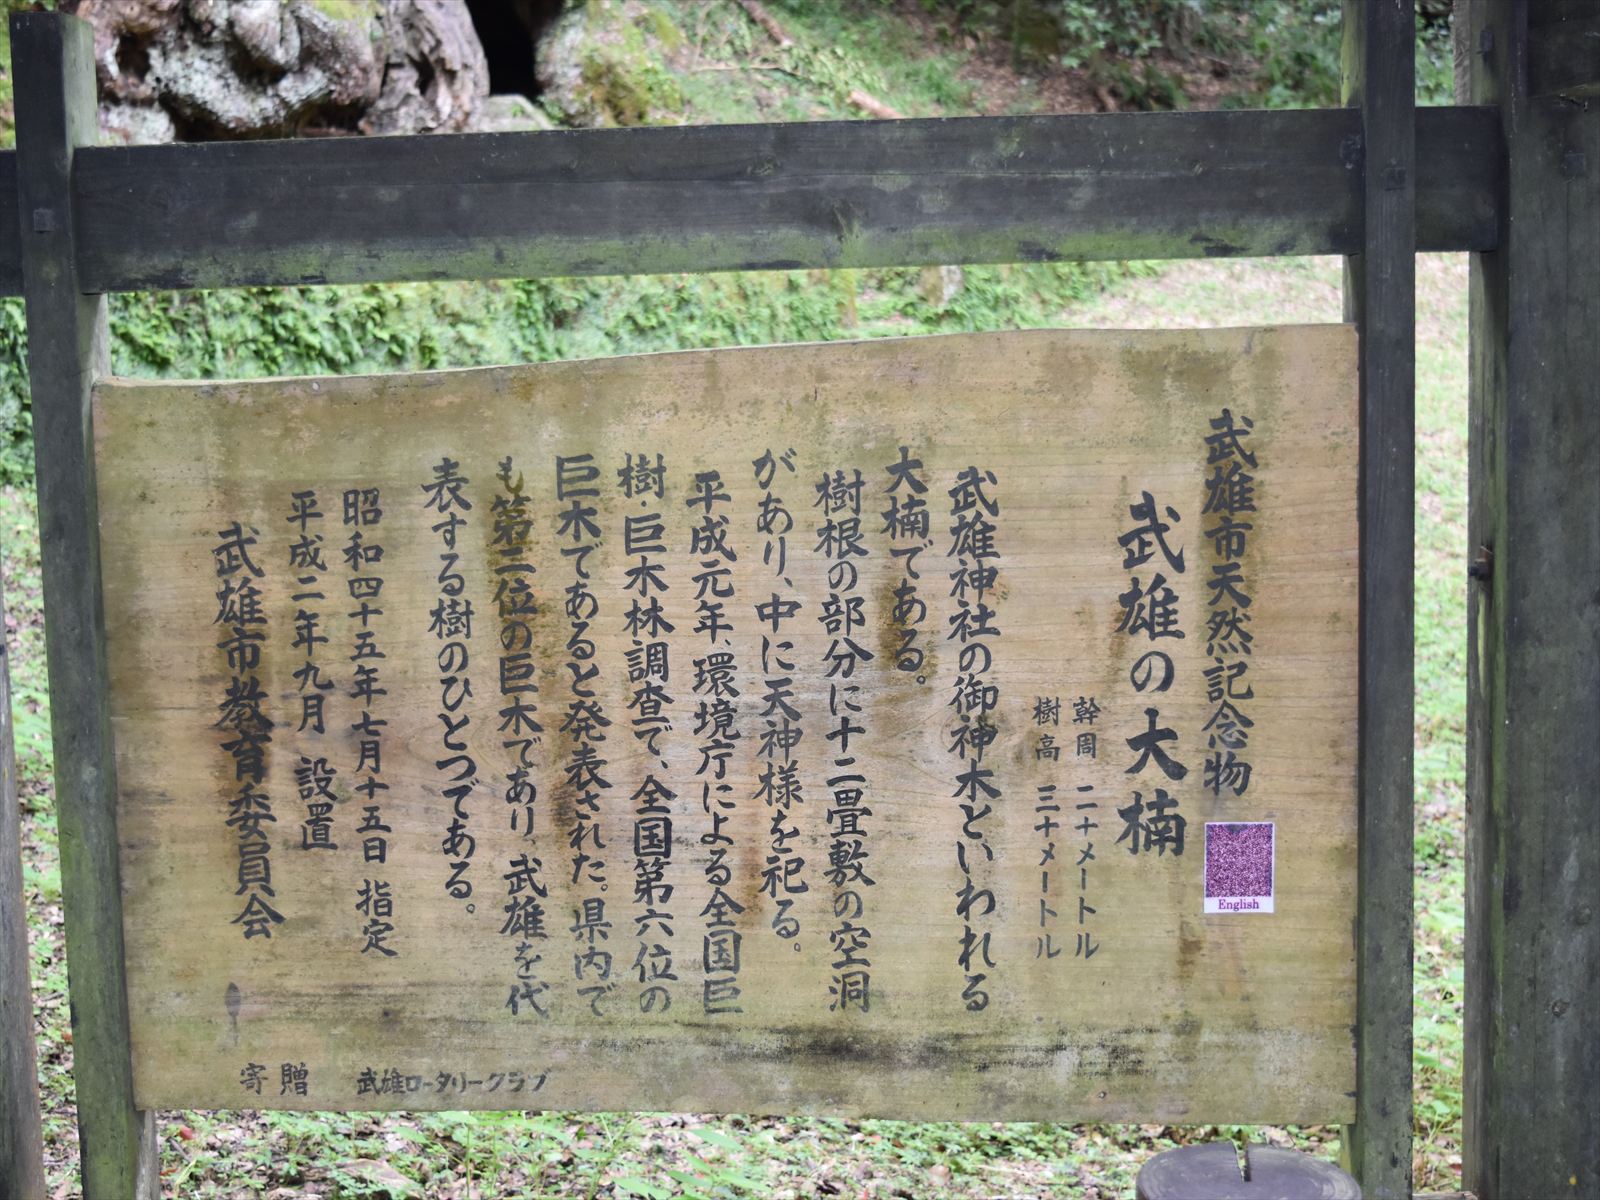 武雄市天然記念物
武雄の大楠
幹周 二十メートル
樹高 三十メートル
武雄神社の御神木といわれる
大楠である。
樹根の部分に十二畳敷の空洞
があり、中に天神様を祀る。
平成元年、環境庁による全国巨
樹・巨木林調査で、全国第六位の
巨木であると発表された。県内で
も第二位の巨木であり、武雄を代
表する樹のひとつである。
昭和四十五年七月十五日 指定
平成二年九月 設置
武雄市教育委員会
寄贈 武雄ロータリークラブ
English